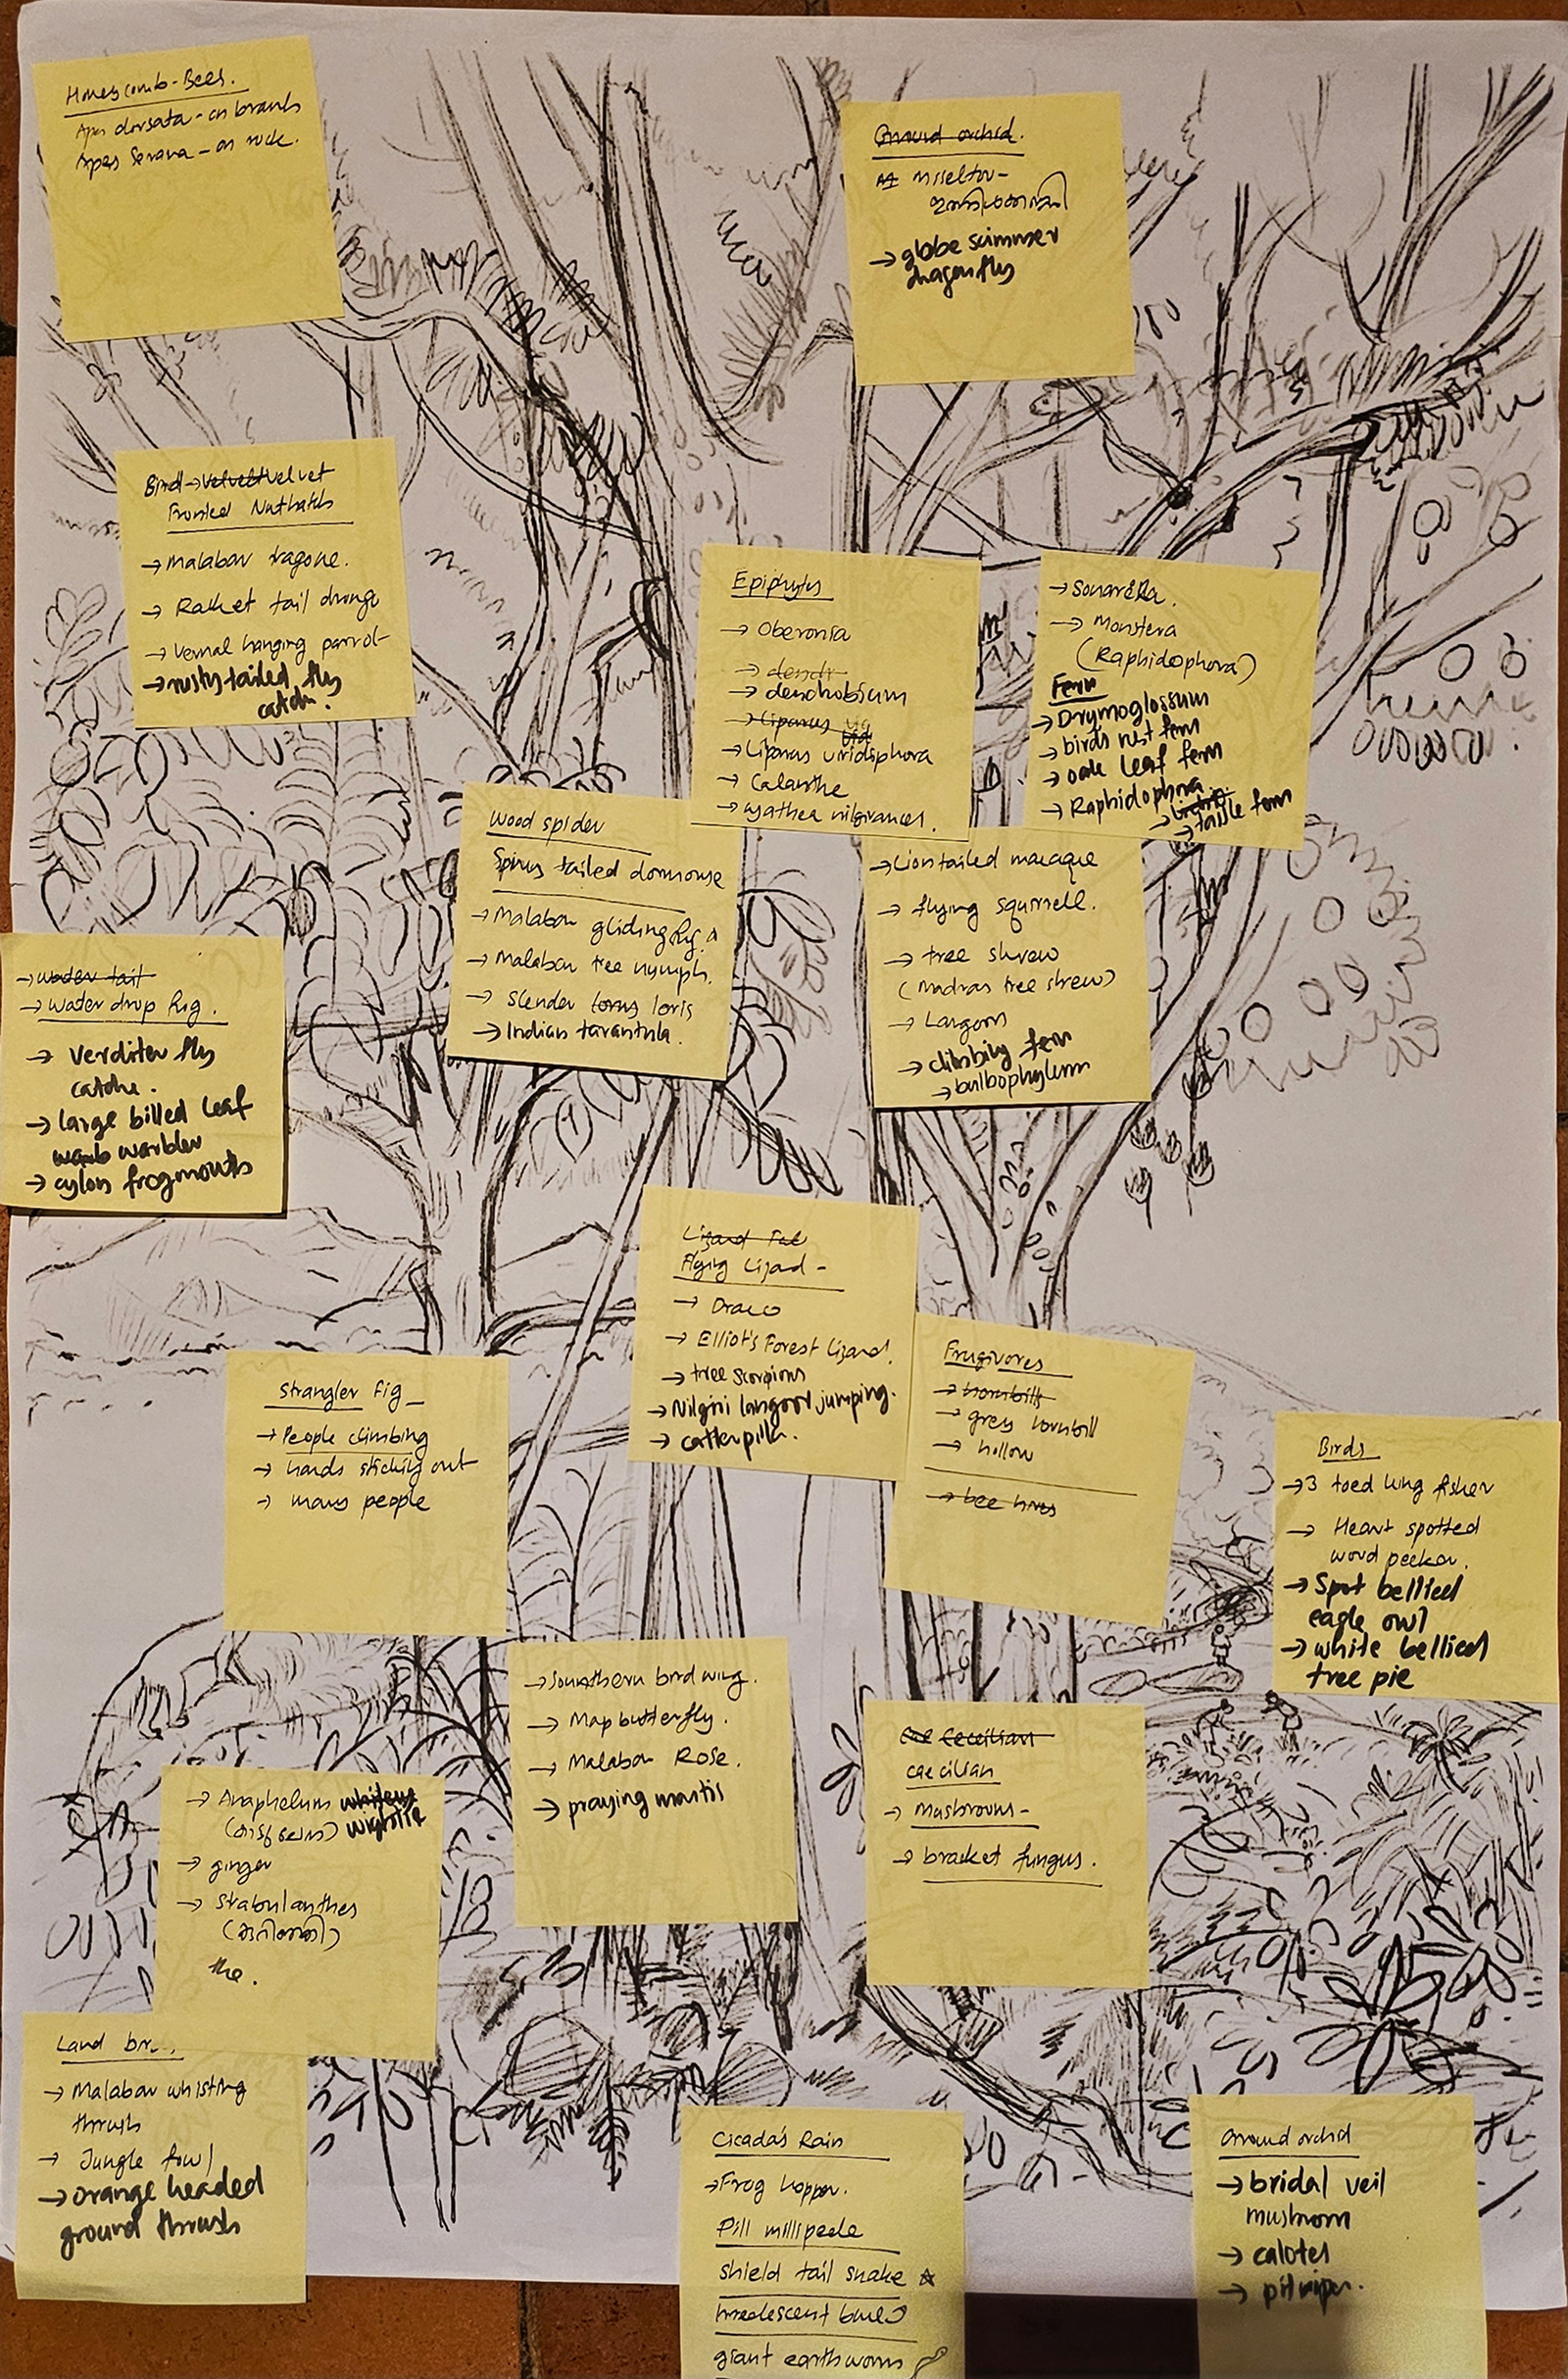 Honeycomb-Bees.
Apis dorsata - on branch
Apes Serana - on rock.
Ground orchid.
Misseltou-
→ globe scimmer
dragonfly
Bird → velvet velvet
Fronted Nuthatch
→ Malabar tragone.
→ Racket tail drongo
→ Vernal hanging parrot
→ rusty tailed fly
catche.
Epiphyts
→ Oberonia
→ dendr
→ dendrobium
→ Liparus
→ Liparus viridiphora
→ Calanthe
→ cyathea nilgirances.
→ Sonarella.
→ Monstera
(Raphidophora)
Fern
→ Drymoglossum
→ birds nest fern
→ oak leaf fern
→ Raphidophora
→ tassle fern
Wood spider
Spiny tailed dormouse
→ Malabar gliding frg
→ Malabar tree nymph.
→ slender lorus loris
→ Indian tarantula.
→ Liontailed macaque
→ flying squirrell.
→ tree shrew
(Madras tree shrew)
→ Langoor
→ climbing fern
→ bulbophyllum
→ water tail
→ water drop frg.
→ Verditer fly
catche.
→ large billed leaf
warb warbler
→ cylon frogmouth
Lizard Tal
Flying Lizad -
→ Draco
→ Elliot's Forest Lizard.
→ tree scorpions
→ Nilgiri langoor jumping.
→ catterpillr.
Frugivores
→ hornbills
→ grey hornbill
→ hollow
→ bee hives
strangler fig
→ People climbing
→ hands sticking out
→ many people
Birds
→ 3 toed king fisher
→ Heart spotted
wood pecker.
→ Spot bellied
eagle owl
→ white bellied
tree pie
→ Sounthern bird wing.
→ Map butterfly.
→ Malabar Rose.
→ praying mantis
Ceccilian
caecilian
→ Mushrooms-
→ bracket fungus.
→ Anaphelum
wightie
→ ginger
→ Strabulanthes
the.
Land
→ Malabar whistling
thrush
→ Jungle fowl
→ orange headed
ground thrush
Cicada's Rain
→ Frog hopper.
Pill millipede
shield tail snake ☆
giant earthworm
Ground orchid
→ bridal veil
mushroom
→ calotes
→ pitviper.